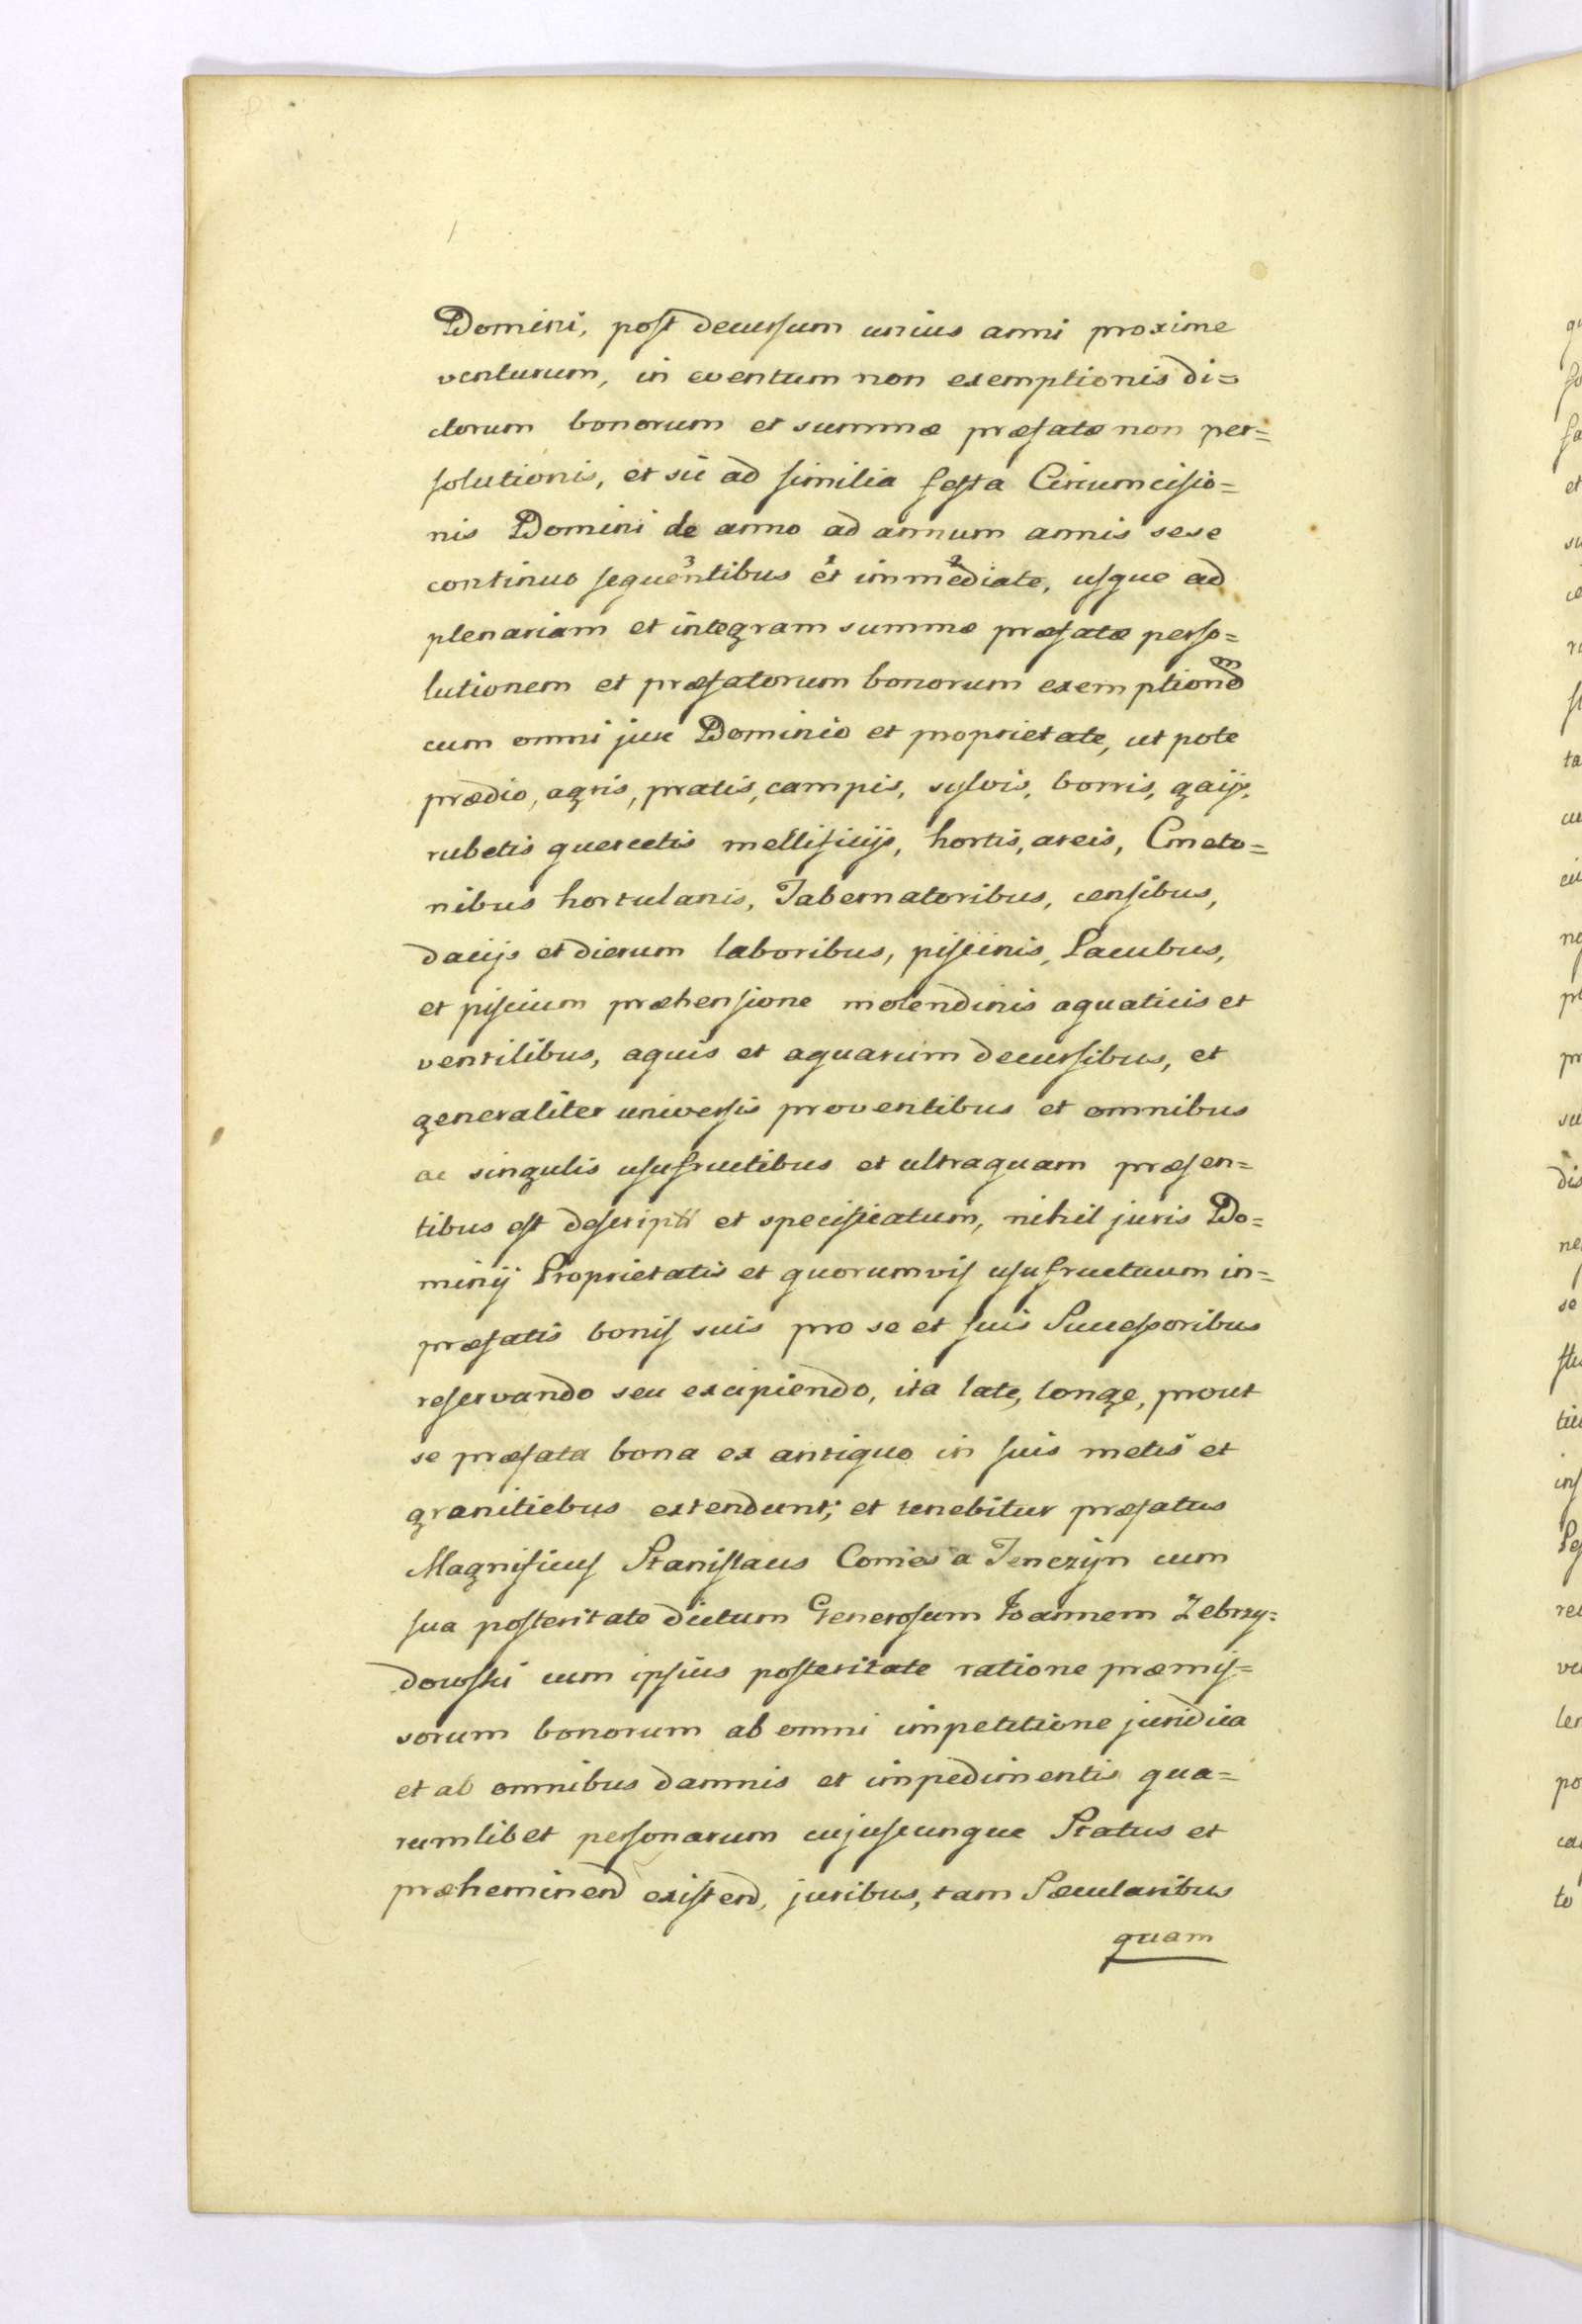 Domini, post decursum unius anni proxime
venturum, in eventum non exemptionis di=
ctorum bonorum et summæ præfatæ non per=
solutionis, et sic ad similia festa Circumcisio=
nis Domini de anno ad annum annis sese
continuo sequentibus 3 et 1 immediate 2, usque ad
plenariam et integram summæ præfatæ perso=
lutionem et præfatorum bonorum exemptionem
cum omni jure Dominio et proprietate, ut pote
prædio, agris, pratis, campis, sylvis, borris, gaijs,
rubetis quercetis mellificijs, hortis, areis, Cmeto=
nibus hortulanis, Tabernatoribus, censibus,
dacijs et dierum laboribus, piscinis, Lacubus,
et piscium præhensione molendinis aquaticis et
ventilibus, aquis et aquarum decursibus, et
generaliter universis proventibus et omnibus
ac singulis usufructibus et ultraquam præsen=
tibus est descriptū et specificatum, nihil juris Do=
minij Proprietatis et quorumvis usufructuum in=
præfatis bonis suis pro se et suis Successoribus
reservando seu excipiendo, ita late, longe, prout
se præfata bona ex antiquo in suis metis et
granitiebus extendunt; et tenebitur præfatus
Magnificus Stanislaus Comes a Tenczijn cum
sua posteritate dictum Generosum Ioannem Zebrzy=
dowski cum ipsius posteritate ratione præmis=
sorum bonorum ab omni impetitione juridica
et ab omnibus damnis et impedimentis qua=
rumlibet personarum cujuscunque Status et
præheminend existend, juribus, tam Sæcularibus
quam